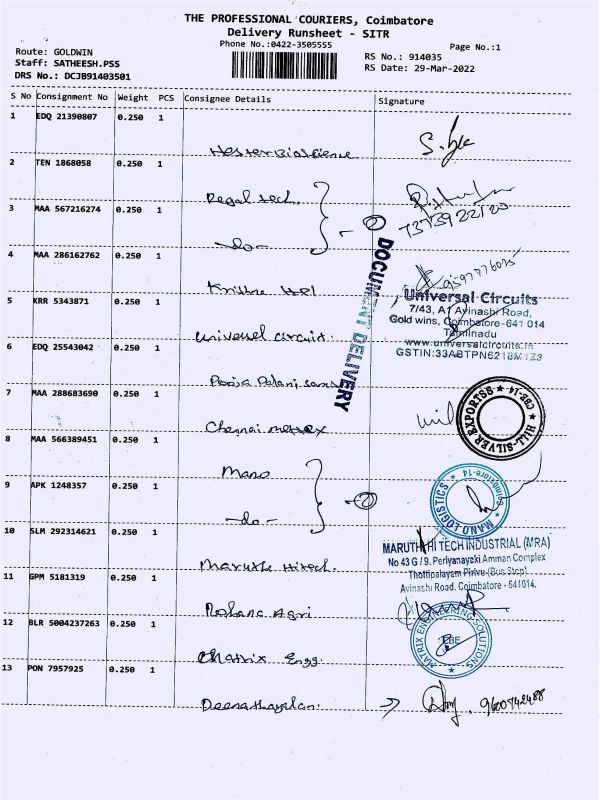 THE PROFESSIONAL COURIERS, Coimbatore
Delivery Runsheet - SITR
Phone No.:0422-3505555
Page No.:1
Route: GOLDWIN
Staff: SATHEESH.PSS
DRS No.: DCJB91403501
RS No.: 914035
RS Date: 29-Mar-2022
S No Consignment No Weight PCS Consignee Details Signature
1 EDQ 21390807 0.250 1
Hester Bioscience
2 TEN 1868058 0.250 1
Regal tech.
3 MAA 567216274 0.250 1
-do-
4 MAA 286162762 0.250 1
Krithra HPL
5 KRR 5343871 0.250 1
Universel circuit.
6 EDQ 25543042 0.250 1
Pooja Palani sons
7 MAA 288683690 0.250 1
Chennai
8 MAA 566389451 0.250 1
Mano
9 APK 1248357 0.250 1
-do-
10 SLM 292314621 0.250 1
Maruthi Hitech.
11 GPM 5181319 0.250 1
Roshana Agri
12 BLR 5004237263 0.250 1
Matrix Engg
13 PON 7957925 0.250 1
Deenathayalan.
DOCUMENT DELIVERY
7373922120
Universal Circuits
7/43, A1 Avinashi Road,
Gold wins, Coimbatore-641 014
Tamilnadu
www.universalcircuits.in
GSTIN:33ABTPN6218M1Z3
HILL-SILVER EXPORTSS
CBE-14
MANO LOGISTICS
Coimbatore-14
MARUTHI HI TECH INDUSTRIAL (MRA)
No 43 G / 9. Periyanayaki Amman Complex
Thottipalayam Pirivu (Bus Stop)
Avinashi Road. Coimbatore - 641014.
MATRIX ENGINEERING SOLUTIONS
CBE
9600742488